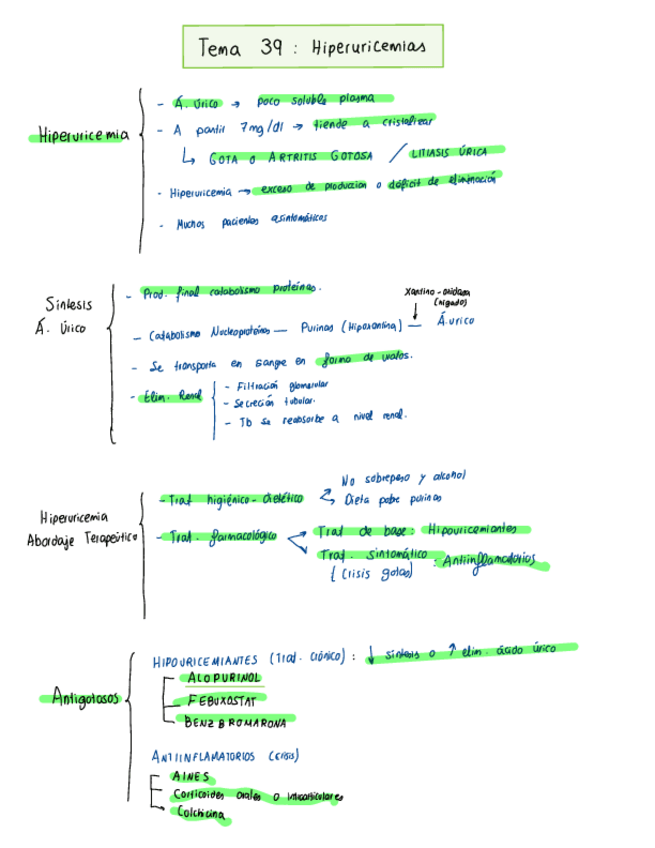 Tema 39 : Hiperuricemias
Hiperuricemia
- Á. Úrico → poco soluble plasma
- A partir 7mg/dl → tiende a cristalizar
↳ GOTA O ARTRITIS GOTOSA / LITIASIS ÚRICA
- Hiperuricemia → exceso de produccion o déficit de eliminación
- Muchos pacientes asintomáticos
Síntesis
Á. Úrico
- Prod. final catabolismo proteínas.
Xantino-oxidasa
(hígado)
- Catabolismo Nucleoproteínas — Purinas (Hipoxantina) — Á.urico
- Se transporta en sangre en forma de uratos.
- Elim. Renal
- Filtración glomerular
- Secreción tubular.
- Tb se reabsorbe a nivel renal.
Hiperuricemia
Abordaje Terapeútico
- Trat higiénico-dietético
No sobrepeso y alcohol
Dieta pobre purinas
- Trat. farmacológico
Trat de base: Hipouricemiantes
Trat. sintomático : Antiinflamatorios
(Crisis gotas)
Antigotosos
HIPOURICEMIANTES (Trat. Crónico) : ↓ síntesis o ↑ elim. ácido úrico
ALOPURINOL
FEBUXOSTAT
BENZBROMARONA
ANTIINFLAMATORIOS (crisis)
AINES
Corticoides orales o intraarticulares
Colchicina